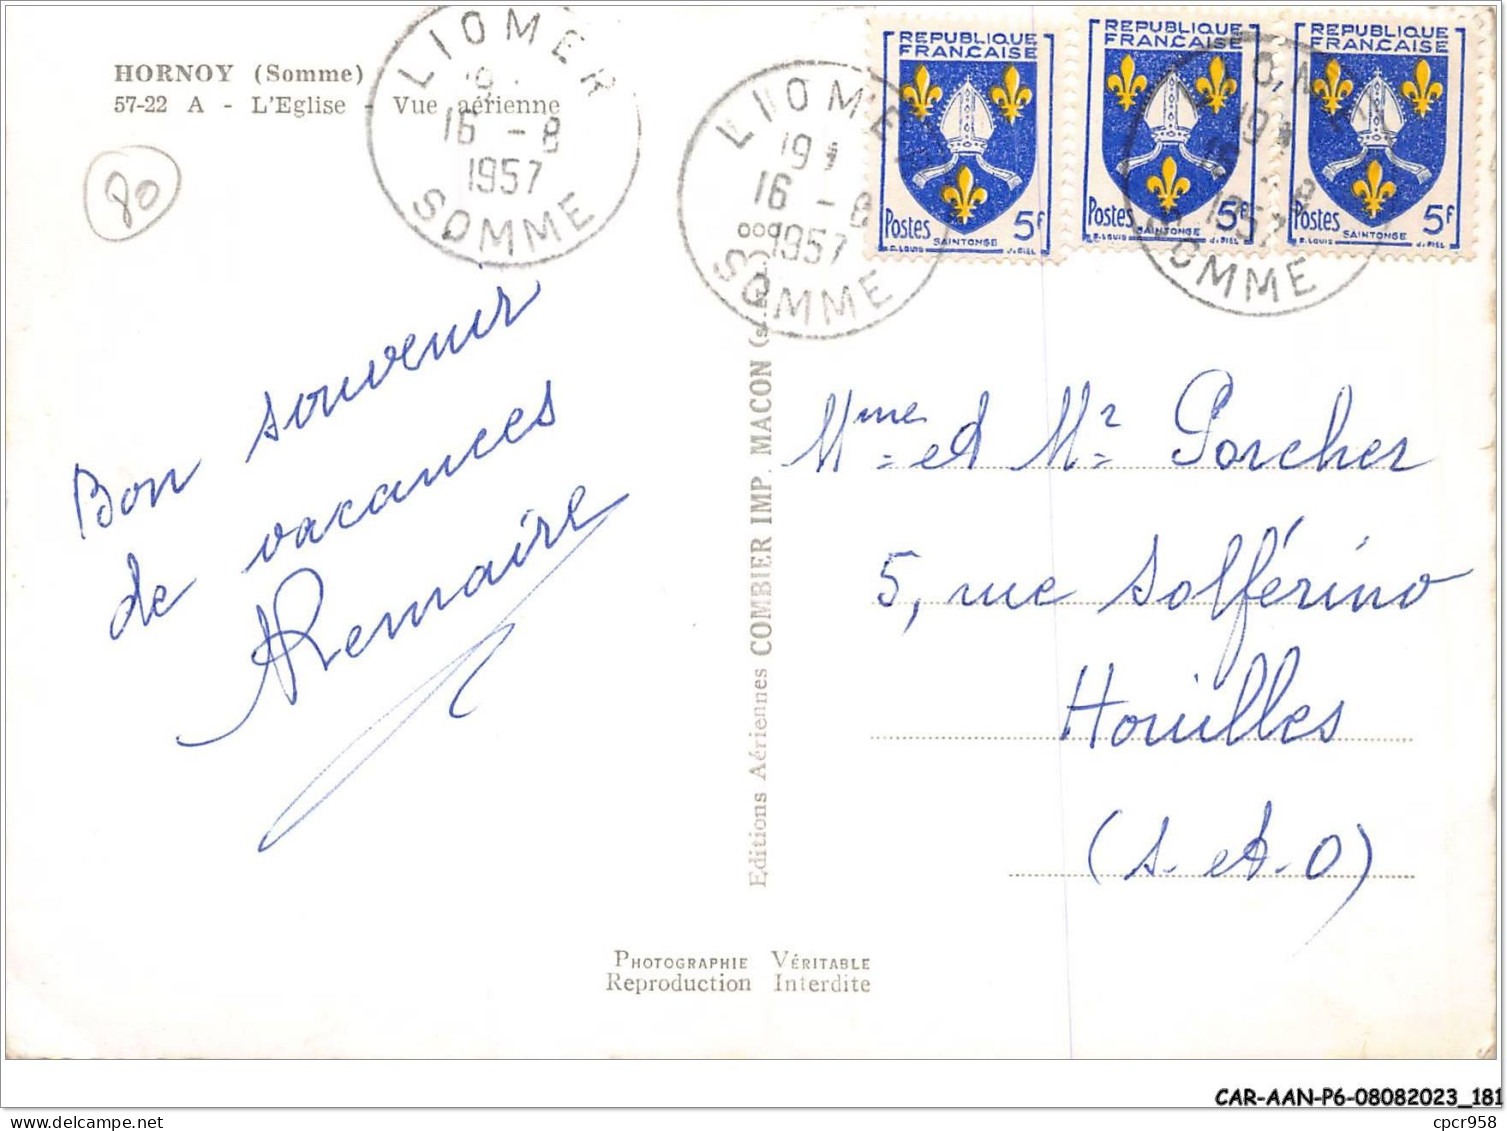 HORNOY (Somme)
57-22 A - L'Eglise - Vue aérienne
80
LIOMER
16 - 8
1957
SOMME
LIOMER
19
16 - 8
1957
SOMME
19
16 - 8
1957
SOMME
REPUBLIQUE
FRANCAISE
Postes 5F
SAINTONGE
R. LOUIS J. PIEL
REPUBLIQUE
FRANCAISE
Postes 5F
SAINTONGE
R. LOUIS J. PIEL
REPUBLIQUE
FRANCAISE
Postes 5F
SAINTONGE
R. LOUIS J. PIEL
Bon souvenir
de vacances
Remaire
Editions Aériennes COMBIER IMP. MACON
Mme et Mr Porcher
5, rue Solférino
Houilles
(S.-et-O)
PHOTOGRAPHIE VÉRITABLE
Reproduction Interdite
CAR-AAN-P6-08082023_181
cpcr958